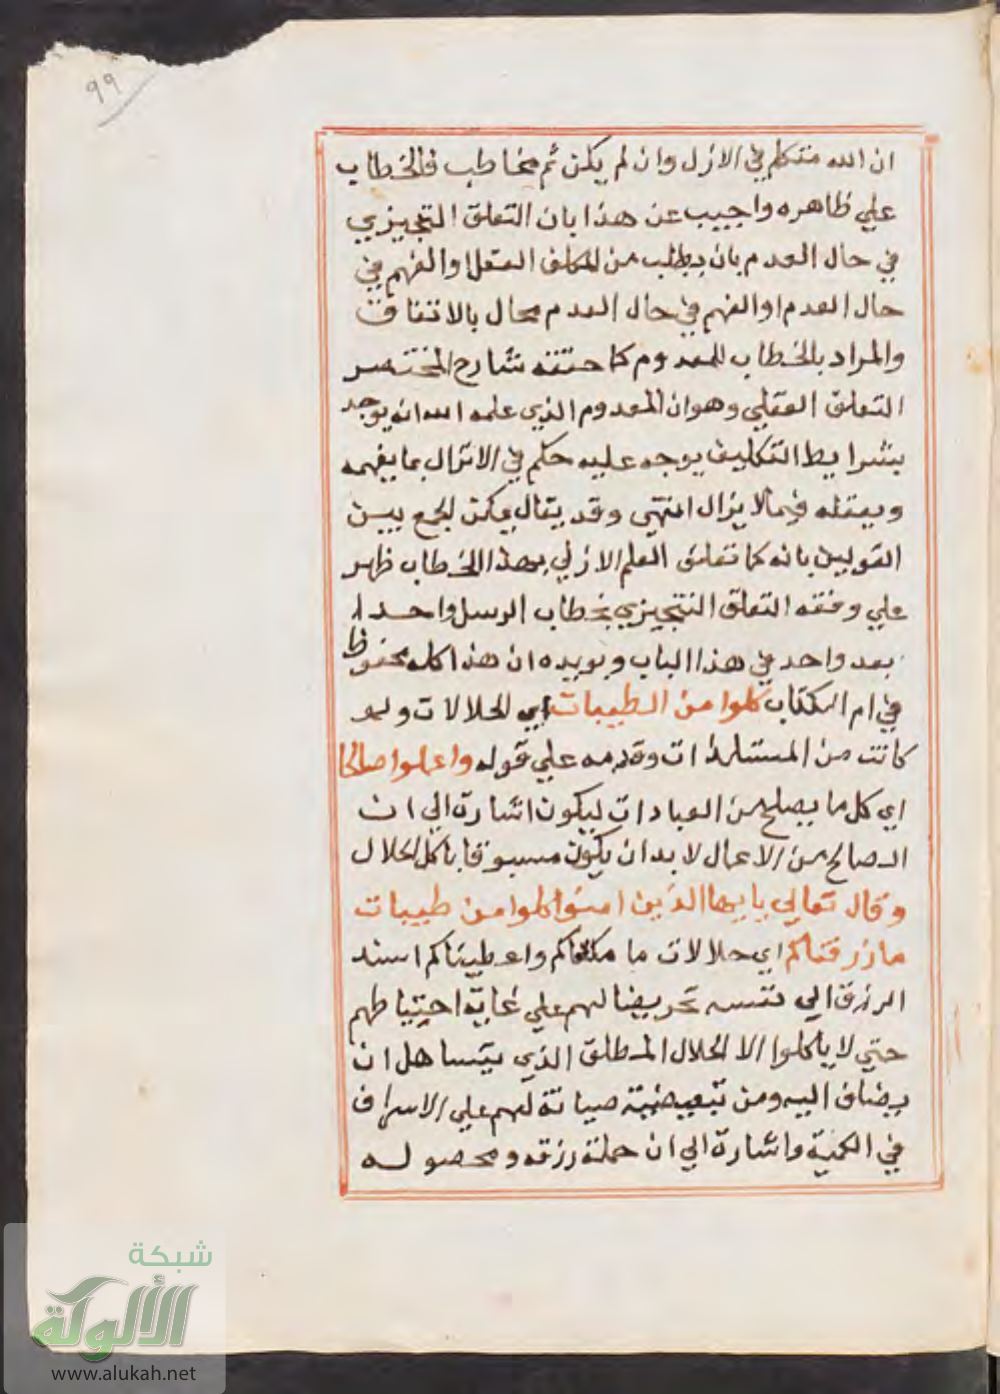 ٩٩
ان الله متكلم في الازل وان لم يكن ثم مخاطب فالخطاب
علي ظاهره واجيب عن هذا بان التعلق التجيزي
في حال العدم بان يطلب من المكلف الفعل او الفهم في
حال العدم او الفهم في حال العدم محال بالاتفاق
والمراد بالخطاب للمعدوم كما حققه شارح المختصر
التعلق العقلي وهو ان المعدوم الذي علم الله انه يوجد
بشرايط التكليف يوجه عليه حكم في الازل بما يفهمه
ويعقله فيما لا يزال انتهي وقد يقال يمكن الجمع بين
القولين بانه كما تعلق العلم الازلي بهذا الخطاب ظهر
علي وفقه التعلق التنجيزي بخطاب الرسل واحدا
بعد واحد في هذا الباب ويويده ان هذا كله محفوظ
في ام الكتاب كلوا من الطيبات اي الحلالات ولو
كانت من المستلذات وقدمه علي قوله واعملوا صالحا
اي كل ما يصلح من العبادات ليكون اشارة الي ان
الصالح من الاعمال لا بد ان يكون مسبوقا باكل الحلال
وقال تعالي يا يها الذين امنوا كلوا من طيبات
ما رزقناكم اي حلالات ما مكناكم واعطيناكم اسند
الرزق الي نفسه تحريضا لهم علي غاية احتياطهم
حتي لا ياكلوا الا الحلال المطلق الذي يتساهل ان
يضاف اليه ومن تبعيضية صيانة لهم علي الاسراف
في الكمية واشارة الي ان جملة رزقه ومحصوله
شبكة
الألوكة
www.alukah.net